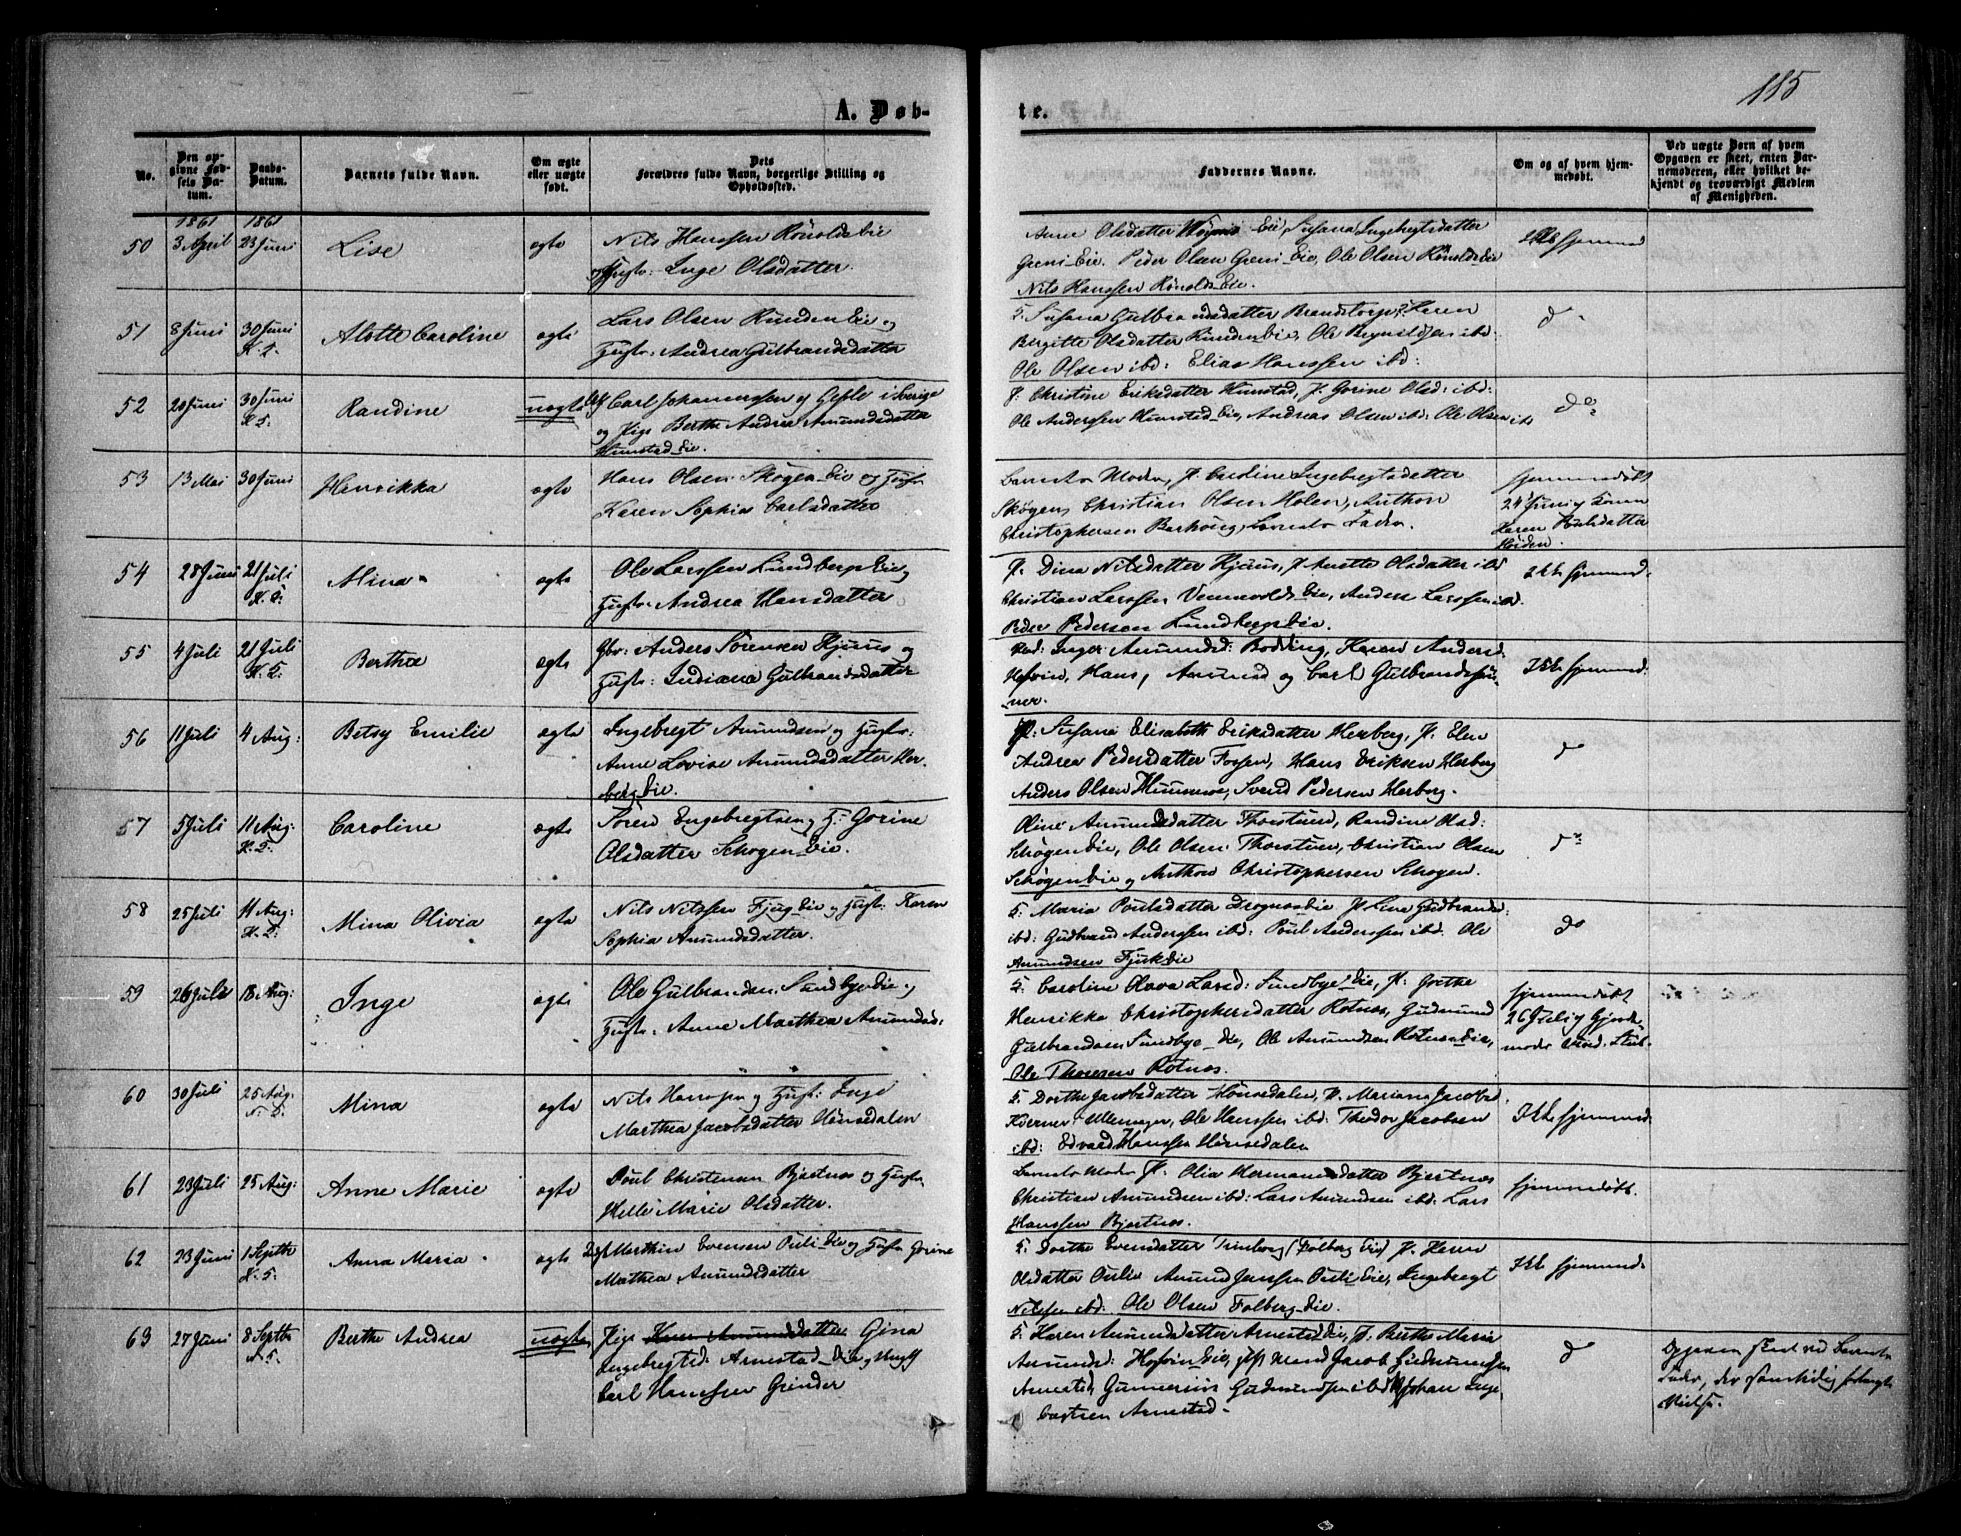 115
A. Døb-
te.
No.
Den opgivne Fødsels Datum.
Daabs-Datum.
Barnets fulde Navn.
Om ægte eller uægte født.
Dets Forældres fulde Navn, borgerlige Stilling og Opholdssted.
Faddernes Navne.
Om og af hvem hjemmedøbt.
Ved uægte Børn af hvem Opgaven er skeet, enten Barnemoderen, eller hvilket bekjendt og troværdigt Medlem af Menigheden.
1861 1861
50 3 April 23 Juni Lise ægte Nils Hanssen Rönolds Eie
og Hustr: Inge Olsdatter.
Anne Olsdatter Eie, Susana Ingebregtsdatter
Greni-Eie. Peder Olsen Greni-Eie, Ole Olsen Rönolds Eie
Nils Hanssen Rönolds Eie.
51 8 Juni 30 Juni Alette Caroline ægte Lars Olsen Runden Eie og
Hustr: Andrea Gulbrandsdatter
G: Susana Gulbrandsdatter Brandstorp, Karen
Bergitte Olsdatter Runden Eie, Ole ibd:
Ole Olsen ibd: Elias Hanssen ibd:
do
52 20 Juni 30 Juni Randine uægte Carl Johannssen af Gefle i Sverige
og Pige Berthe Andrea Amundsdatter
Hunstad Eie.
P. Christine Eriksdatter Hunstad, P. Gorine Olsd: ibd:
Ole Anderssen Hunstad Eie, Andreas Olsen ibd: Ole Olsen ibd
do
53 13 Mai 30 Juni Henrikka ægte Hans Olsen Skøgen Eie og Hustr
Karen Sophie Carlsdatter
Barnets Moder, P. Caroline Ingebregtsdatter
Skøgen, Christian Olsen Holen, Anthon
Christophersen Barhoug, Barnets Fader.
hjemmedøbt
24 Juni af Konen
Karen Poulsdatter
54 28 Juni 21 Juli Mina ægte Ole Larssen Lundbergs Eie og
Hustr: Andrea Hansdatter
P. Dina Nilsdatter Hjuus, P. Anette Olsdatter ibd
Christian Larssen Eie, Anders Larssen ibd.
Peder Pedersen Lundbergs Eie.
ikke hjemmd:
55 4 Juli 21 Juli Berthe ægte Gbr: Anders Sørensen Hjuus og
Hustr: Indiana Gulbrandsdatter
Inger Amundsd: Bodding, Karen Andersd.
Hofvin, Hans, Amund og Carl Gulbrandssön-
ner.
Ikke hjemmd:
56 11 Juli 4 Aug: Betsy Emilie ægte Ingebregt Amundsen og Hustr:
Anne Lovise Amundsdatter Her-
berg Eie.
G: Susana Elisabeth Eriksdatter Herberg, P. Elen
Andrea Pedersdatter Fossen, Hans Eriksen Herberg
Anders Olsen Svend Pedersen Herberg.
do
57 5 Juli 11 Aug: Caroline ægte Søren Engebregtsen og H: Gorine
Olsdatter Schøgen Eie.
Oline Amundsdatter Thorstuen, Randine Olsd:
Schøgen Eie, Ole Olsen Thorstuen, Christian Olsen
Schøgen Eie og Anthon Christophersen Schøgen.
do
58 25 Juli 11 Aug: Mina Olivia ægte Nils Nilssen Fjug Eie og Hustr: Karen
Sophia Amundsdatter.
G: Maria Poulsdatter P. Lene Gudbrandsd:
ibd: Gudbrand Anderssen ibd: Poul Anderssen ibd. Ole
Amundsen Fjuk Eie
do
59 26 Juli 18 Aug: Inge ægte Ole Gulbrandsen Sundbye Eie og
Hustr. Anne Marthea Amundsd:
G: Caroline Olava Larsd: Sundbye Eie, P: Grethe
Henrikke Christophersdatter Rotnes, Gudmund
Gulbrandsen Sundbye Eie, Ole Amundsen Rotnes Eie,
Ole Thoresen Rotnes.
hjemmedøbt
26 Juli af Gjorde-
moder
60 30 Juli 25 Aug: Mina ægte Nils Hanssen og Hustr: Inge
Marthea Jacobsdatter Hønsedalen
G: Dorthe Jacobsdatter Hønsedalen, P. Marian Jacobsd.
Ole Hanssen ibd: Theodor Jacobsen
ibd: Edvard Hanssen Hønsedalen
Ikke hjemmd:
61 23 Juli 25 Aug: Anne Marie ægte Poul Christensen Bjertnes og Hustr.
Helle Marie Olsdatter.
Barnets Moder P. Olia Hermansdatter Bjertnes
Christian Amundsen ibd: Lars Amundsen ibd. Lars
Hanssen Bjertnes.
hjemmedøbt.
62 23 Juni 1 Septbr Anna Maria ægte Marthin Evensen Puli Eie og Hustr Gorine
Mathea Amundsdatter
G: Dorthe Evensdatter (Folberg Eie) P. Karen
Olsdatter Puli, Amund Jenssen Puli Eie, Ingebregt
Nilssen ibd. Ole Olsen Folberg Eie.
Ikke hjemmd:
63 27 Juni 8 Septbr Berthe Andrea uægte Pige Karen Amundsdatter Gina
Ingebregtsd: Arnestad Eie og Ungk
Carl Hanssen Grinder
G: Karen Amundsdatter Arnestad Eie, P. Berthe Maria
Amundsd: Hofvin Eie, gift Mand Jacob Gudmundsen
Arnestad, Gunnerius Gudmundsen ibd: Johan Inge-
bregtsen Arnestad.
do
Opgaven skeet ved Barnets
Fader, der samtidig